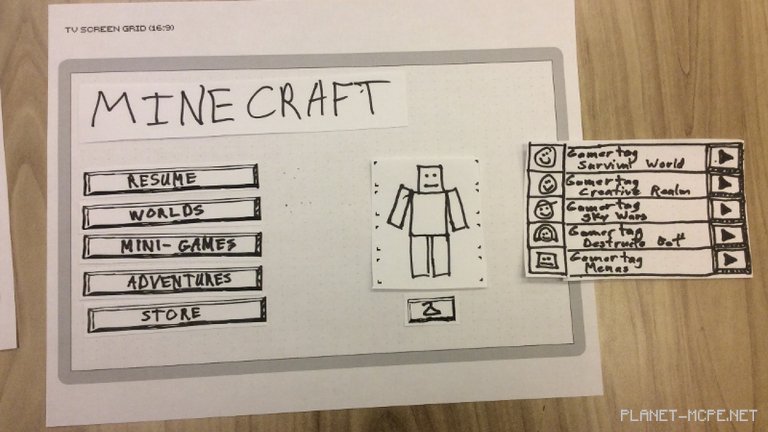 TV SCREEN GRID (16:9)
MINECRAFT
RESUME
WORLDS
MINI-GAMES
ADVENTURES
STORE
Gamertag
Survival World
Gamertag
Creative Realm
Gamertag
Sky Wars
Gamertag
Destructo Bot
Gamertag
Menus
PLANET-MCPE.NET